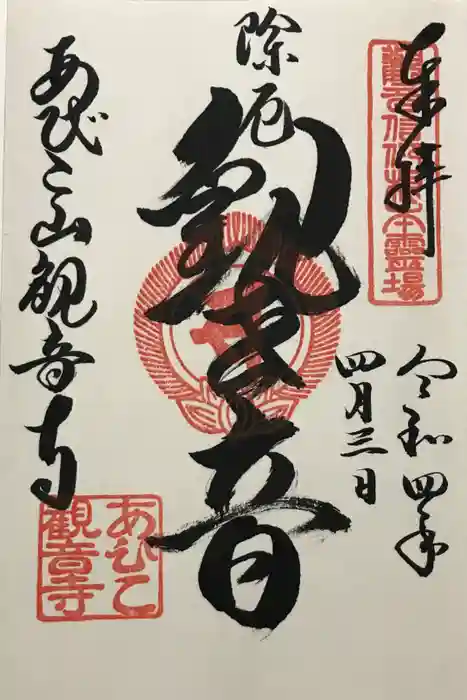 奉拝
觀音信仰根本靈場
令和四年
四月三日
除厄
観世音
あびこ山観音寺
あびこ
観音寺